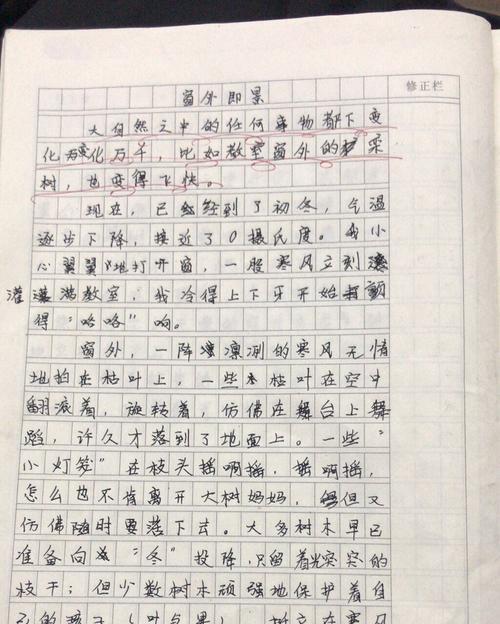 修正栏
窗外即景
大自然之中的任何事物都下变
化万千，比如教室窗外的栾
树，也变得飞快。
现在，已经到了初冬，气温
逐步下降，接近了0摄氏度。我小
心翼翼地打开窗，一股寒风立刻
灌满教室，我冷得上下牙开始颤
得“咯咯”响。
窗外，一阵凛冽的寒风无情
地拍在枯叶上，一些枯叶在空中
翻滚着，旋转着，仿佛在舞台上舞
蹈，许久才落到了地面上。一些“
小灯笼”在枝头摇啊摇，摇啊摇，
怎么也不肯离开大树妈妈，但又
仿佛随时要落下去。大多树木早已
准备向“冬”投降，只留着光秃秃的
枝干；但少数树木顽强地保护着自
己的孩子（叶与果），挺立在寒风